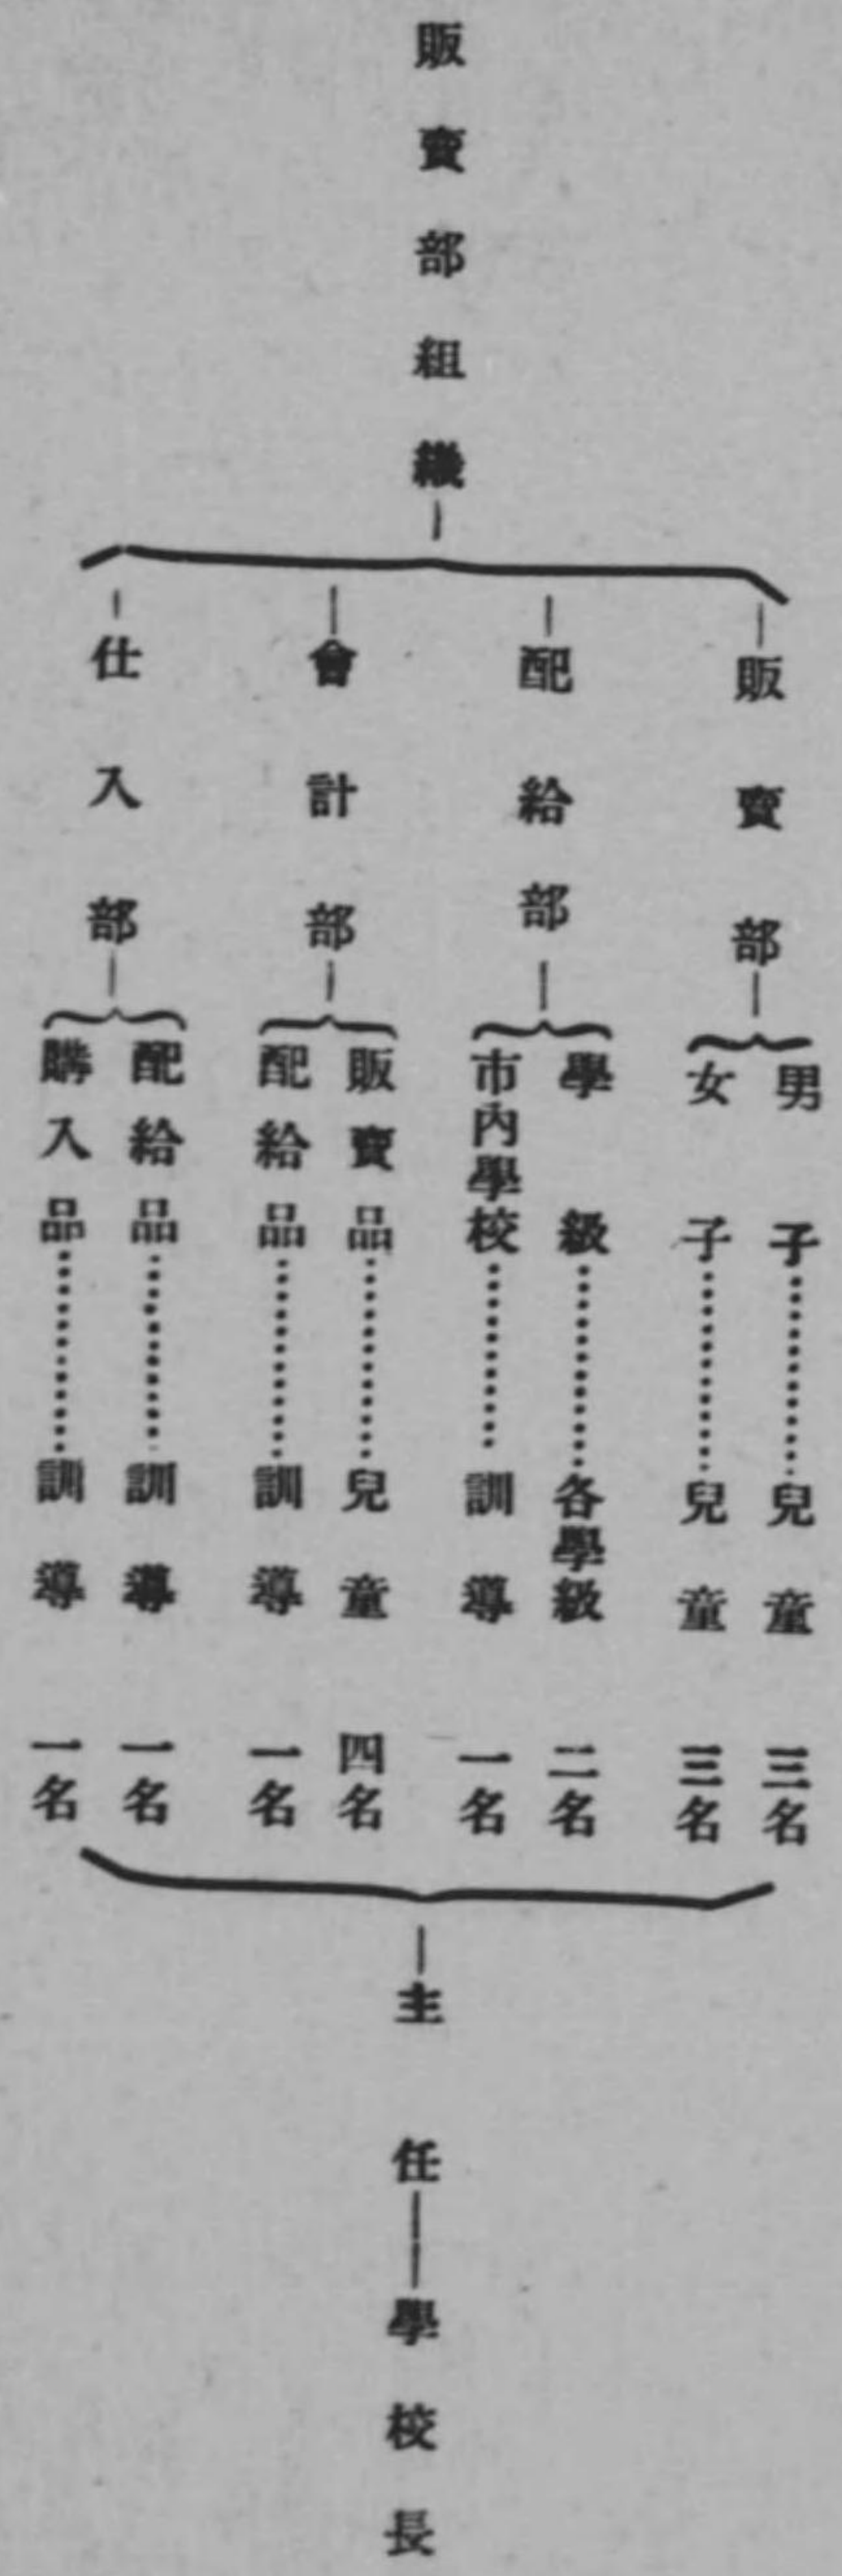 販賣部組織
販賣部
男子……兒童 三名
女子……兒童 三名
配給部
學級……各學級 二名
市內學校……訓導 一名
會計部
販賣品……兒童 四名
配給品……訓導 一名
仕入部
配給品……訓導 一名
購入品……訓導 一名
主任——學校長